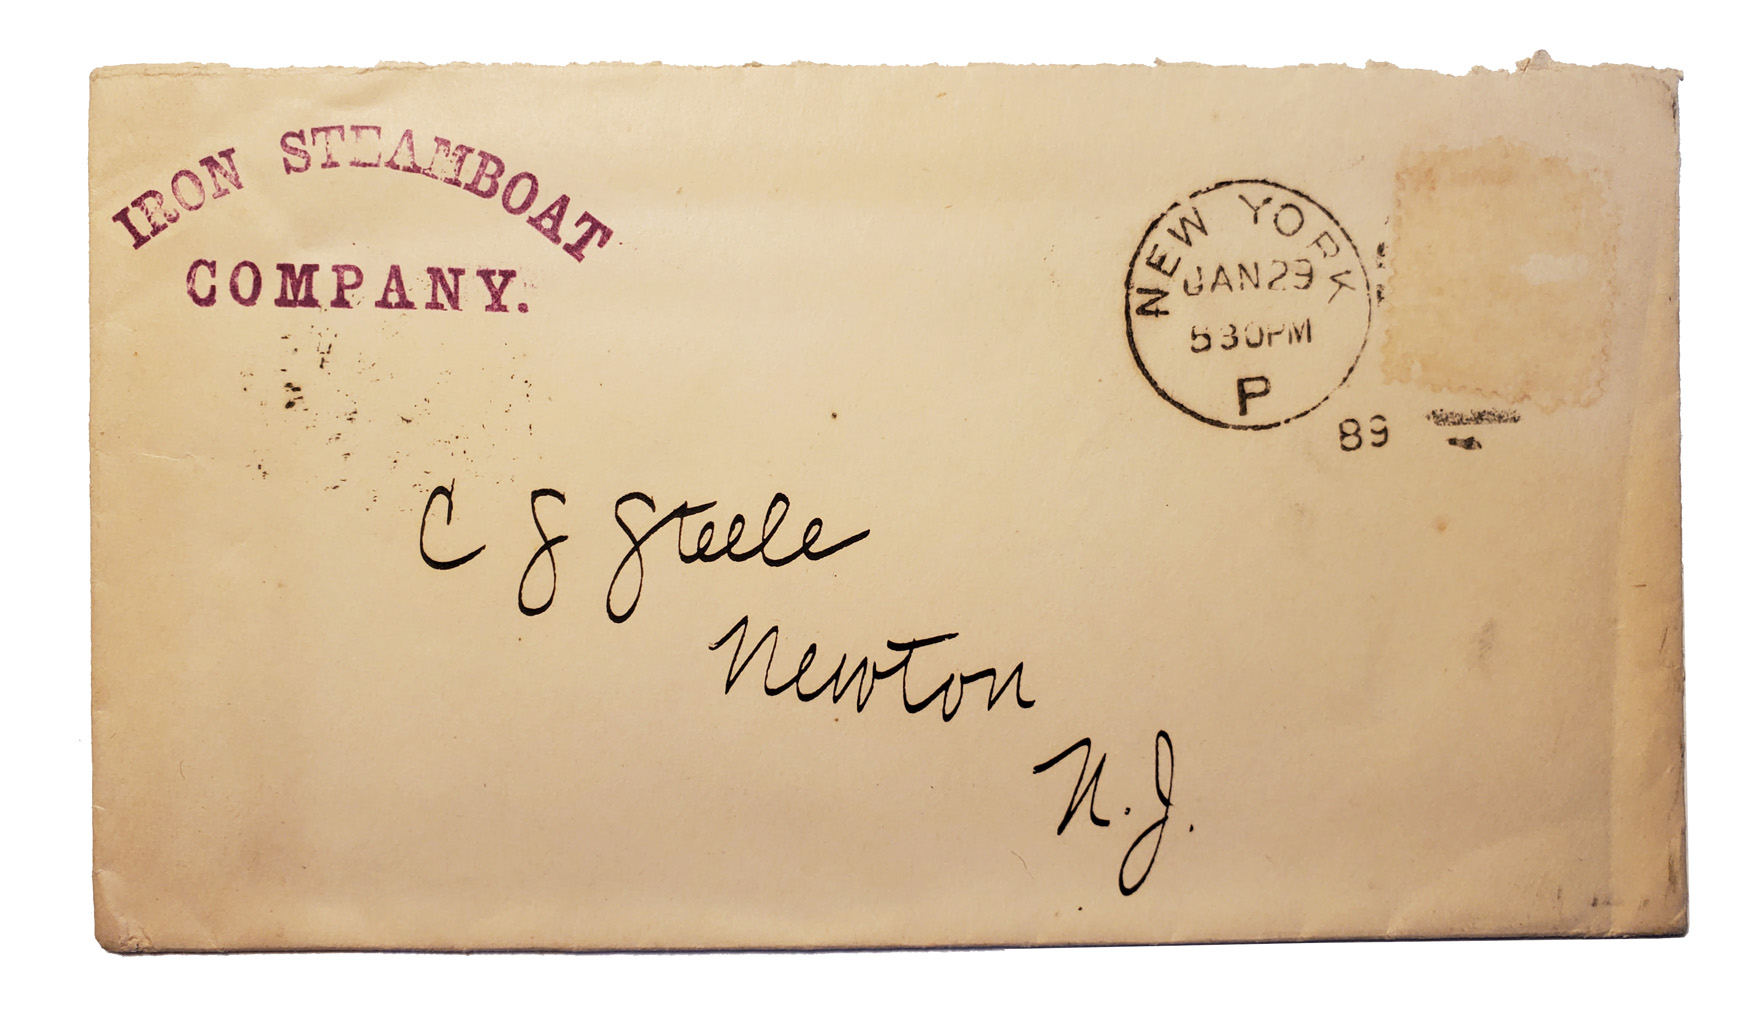 IRON STEAMBOAT
COMPANY.
NEW YORK
JAN 29
530PM
P
89
C S Steele
Newton
N. J.